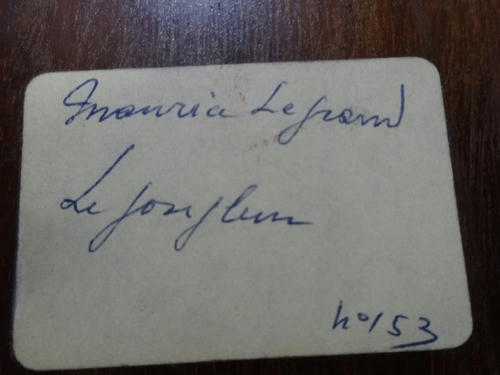 Maurice Legrand
Le jongleur
n°153